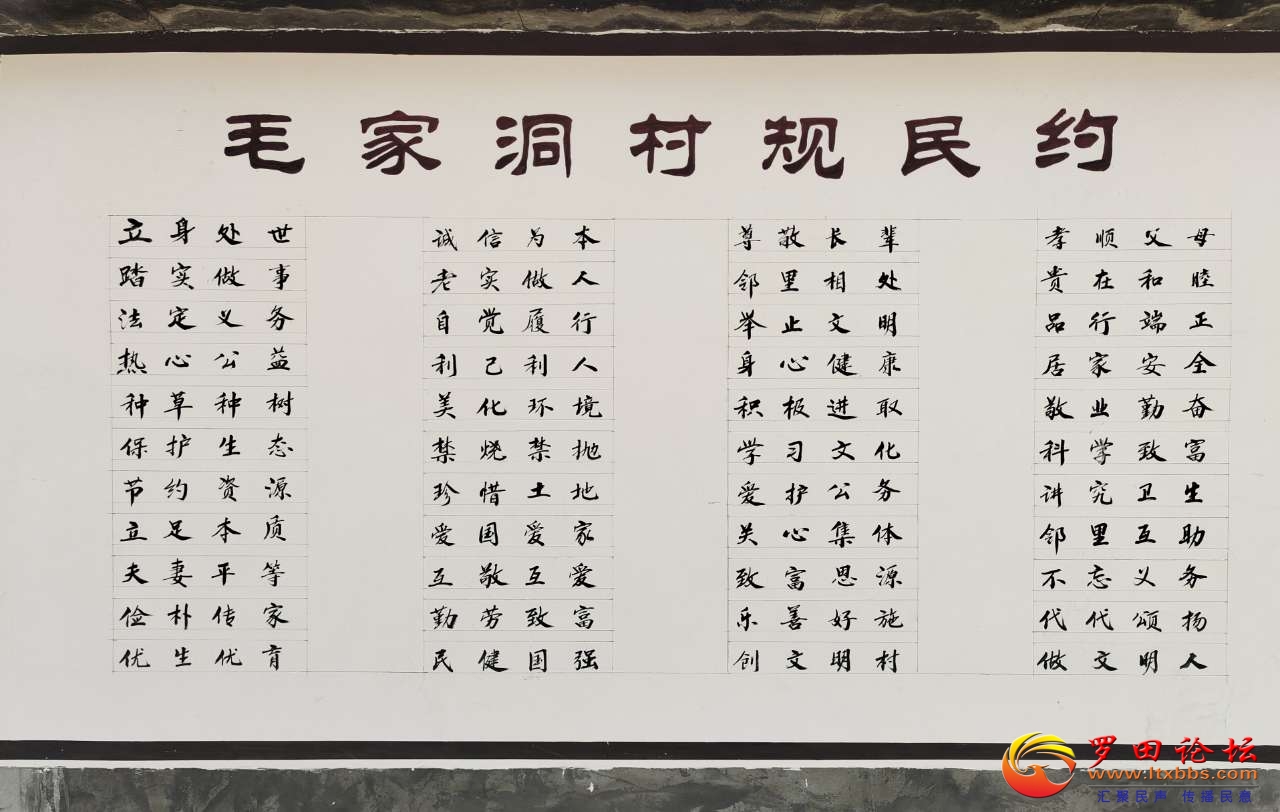 毛家洞村规民约
立身处世 诚信为本 尊敬长辈 孝顺父母
踏实做事 老实做人 邻里相处 贵在和睦
法定义务 自觉履行 举止文明 品行端正
热心公益 利己利人 身心健康 居家安全
种草种树 美化环境 积极进取 敬业勤奋
保护生态 禁烧禁抛 学习文化 科学致富
节约资源 珍惜土地 爱护公务 讲究卫生
立足本质 爱国爱家 关心集体 邻里互助
夫妻平等 互敬互爱 致富思源 不忘义务
俭朴传家 勤劳致富 乐善好施 代代颂扬
优生优育 民健国强 创文明村 做文明人
罗田论坛
www.ltxbbs.com
汇聚民声 传播民息